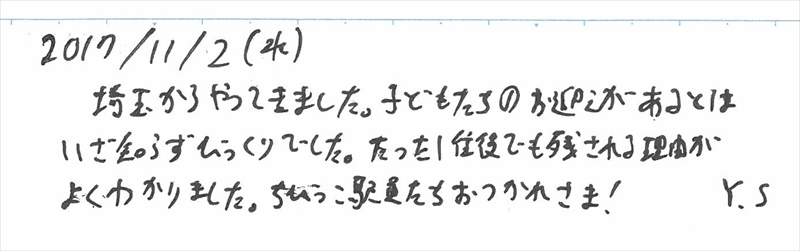 2017/11/2(水)
埼玉からやってきました。子どもたちのお迎えがあるとは
いざ知らずびっくりでした。たった1往復でも残される理由が
よくわかりました。ちびっこ駅員たちおつかれさま! Y.S